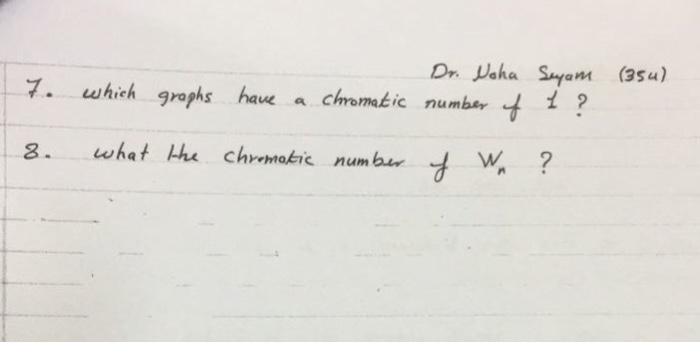 Dr. Noha Seyam (35u)
7. which graphs have a chromatic number of 1 ?
8. what the chromatic number of Wn ?